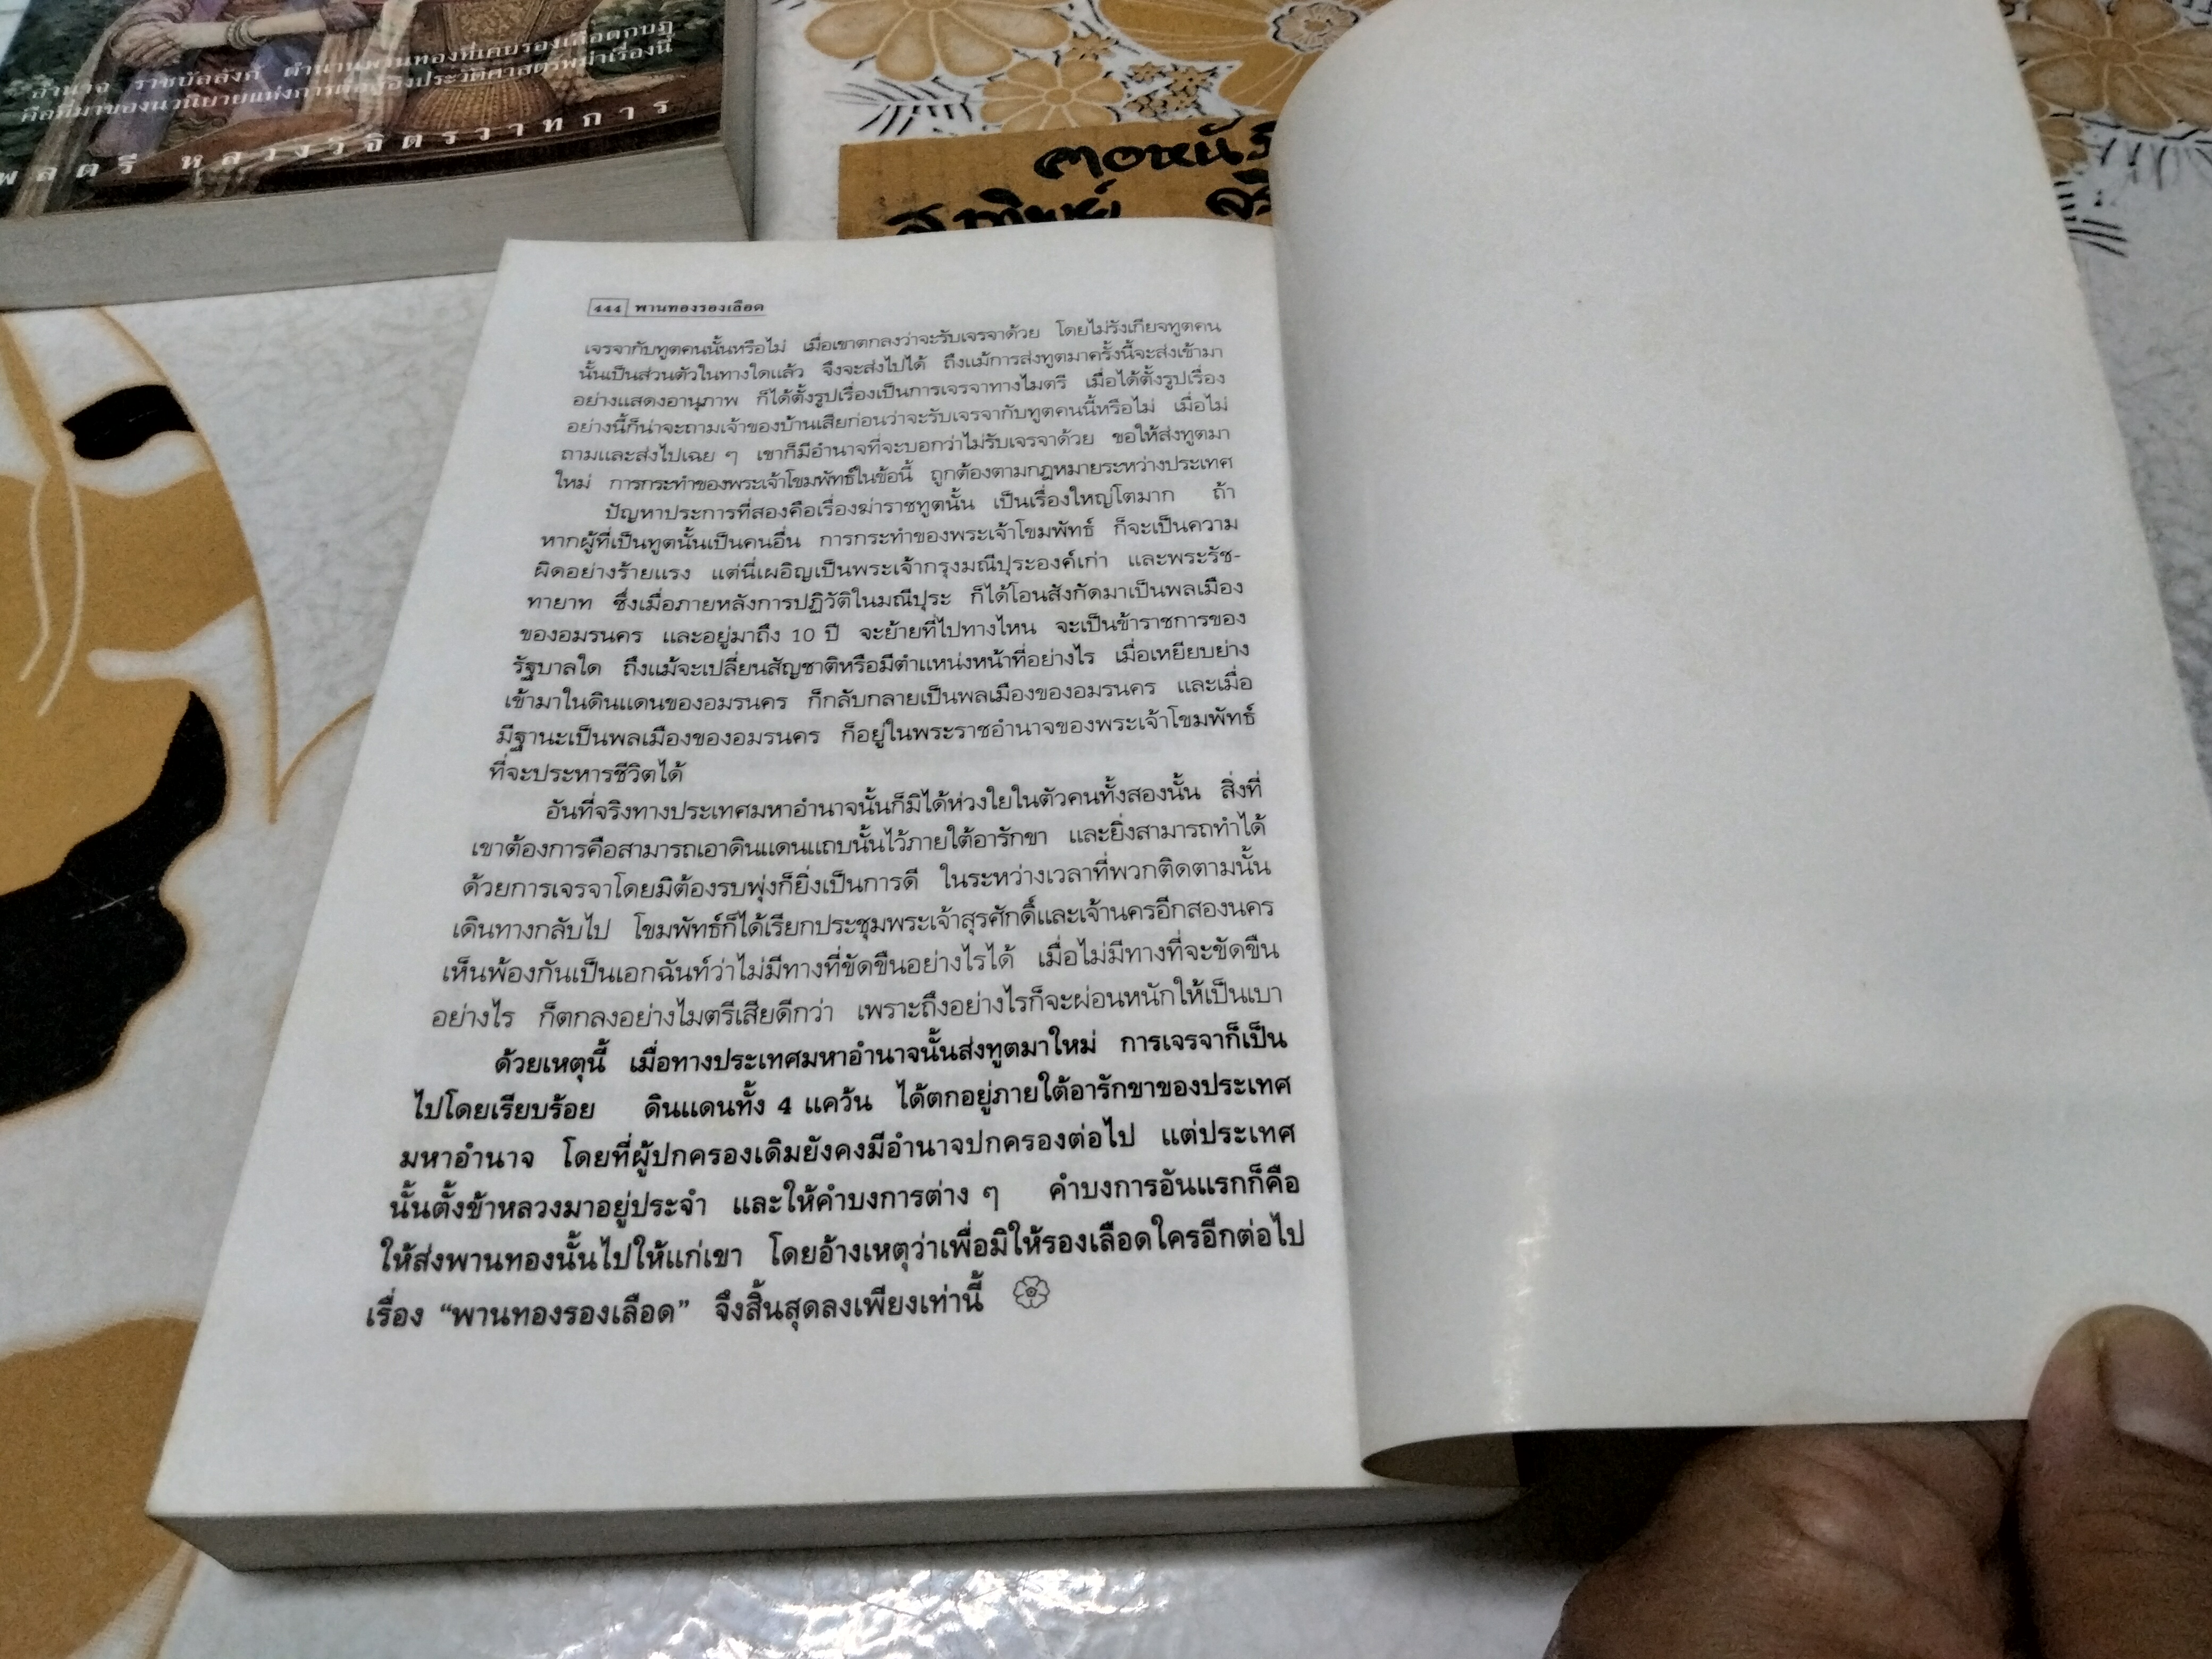 อำนาจ ราชบัลลังก์ ตำนานพานทองที่เคยรองเลือดกบฏ
คือที่มาของนวนิยายแห่งการเมืองอิงประวัติศาสตร์พม่าเรื่องนี้
พลตรี หลวงวิจิตรวาทการ
444 พานทองรองเลือด
เจรจากับทูตคนนั้นหรือไม่ เมื่อเขาตกลงว่าจะรับเจรจาด้วย โดยไม่รังเกียจทูตคน
นั้นเป็นส่วนตัวในทางใดแล้ว จึงจะส่งไปได้ ถึงแม้การส่งทูตมาครั้งนี้จะส่งเข้ามา
อย่างแสดงอานุภาพ ก็ได้ตั้งรูปเรื่องเป็นการเจรจาทางไมตรี เมื่อได้ตั้งรูปเรื่อง
อย่างนี้ก็น่าจะถามเจ้าของบ้านเสียก่อนว่าจะรับเจรจากับทูตคนนี้หรือไม่ เมื่อไม่
ถามและส่งไปเฉย ๆ เขาก็มีอำนาจที่จะบอกว่าไม่รับเจรจาด้วย ขอให้ส่งทูตมา
ใหม่ การกระทำของพระเจ้าโขมพัทธ์ในข้อนี้ ถูกต้องตามกฎหมายระหว่างประเทศ
ปัญหาประการที่สองคือเรื่องฆ่าราชทูตนั้น เป็นเรื่องใหญ่โตมาก ถ้า
หากผู้ที่เป็นทูตนั้นเป็นคนอื่น การกระทำของพระเจ้าโขมพัทธ์ ก็จะเป็นความ
ผิดอย่างร้ายแรง แต่นี่เผอิญเป็นพระเจ้ากรุงมณีปุระองค์เก่า และพระรัช-
ทายาท ซึ่งเมื่อภายหลังการปฏิวัติในมณีปุระ ก็ได้โอนสังกัดมาเป็นพลเมือง
ของอมรนคร และอยู่มาถึง 10 ปี จะย้ายที่ไปทางไหน จะเป็นข้าราชการของ
รัฐบาลใด ถึงแม้จะเปลี่ยนสัญชาติหรือมีตำแหน่งหน้าที่อย่างไร เมื่อเหยียบย่าง
เข้ามาในดินแดนของอมรนคร ก็กลับกลายเป็นพลเมืองของอมรนคร และเมื่อ
มีฐานะเป็นพลเมืองของอมรนคร ก็อยู่ในพระราชอำนาจของพระเจ้าโขมพัทธ์
ที่จะประหารชีวิตได้
อันที่จริงทางประเทศมหาอำนาจนั้นก็มิได้ห่วงใยในตัวคนทั้งสองนั้น สิ่งที่
เขาต้องการคือสามารถเอาดินแดนแถบนั้นไว้ภายใต้อารักขา และยิ่งสามารถทำได้
ด้วยการเจรจาโดยมิต้องรบพุ่งก็ยิ่งเป็นการดี ในระหว่างเวลาที่พวกติดตามนั้น
เดินทางกลับไป โขมพัทธ์ก็ได้เรียกประชุมพระเจ้าสุรศักดิ์และเจ้านครอีกสองนคร
เห็นพ้องกันเป็นเอกฉันท์ว่าไม่มีทางที่ขัดขืนอย่างไรได้ เมื่อไม่มีทางที่จะขัดขืน
อย่างไร ก็ตกลงอย่างไมตรีเสียดีกว่า เพราะถึงอย่างไรก็จะผ่อนหนักให้เป็นเบา
ด้วยเหตุนี้ เมื่อทางประเทศมหาอำนาจนั้นส่งทูตมาใหม่ การเจรจาก็เป็น
ไปโดยเรียบร้อย ดินแดนทั้ง 4 แคว้น ได้ตกอยู่ภายใต้อารักขาของประเทศ
มหาอำนาจ โดยที่ผู้ปกครองเดิมยังคงมีอำนาจปกครองต่อไป แต่ประเทศ
นั้นตั้งข้าหลวงมาอยู่ประจำ และให้คำบงการต่าง ๆ คำบงการอันแรกก็คือ
ให้ส่งพานทองนั้นไปให้แก่เขา โดยอ้างเหตุว่าเพื่อมิให้รองเลือดใครอีกต่อไป
เรื่อง “พานทองรองเลือด” จึงสิ้นสุดลงเพียงเท่านี้